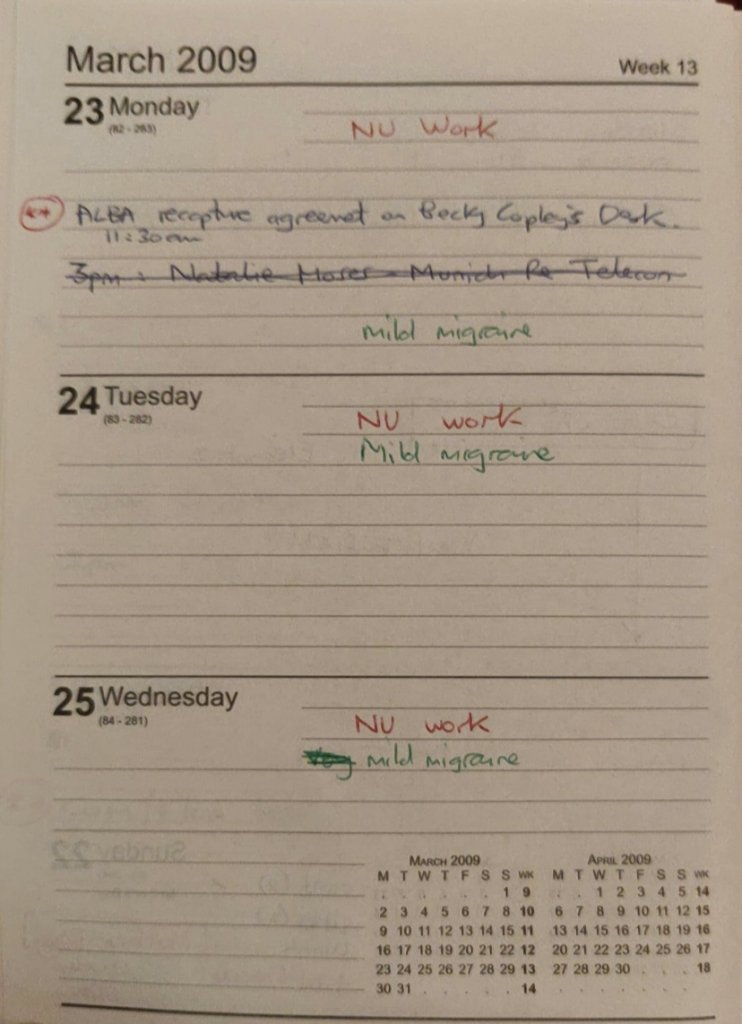 March 2009
Week 13
23 Monday
(82 - 283)
NU Work
ALBA recapture agreement on Becky Copley's Desk.
11:30am
3pm : Natalie Moses - Munich Re Telecon
mild migraine
24 Tuesday
(83 - 282)
NU work
Mild migraine
25 Wednesday
(84 - 281)
NU work
mild migraine
MARCH 2009
M T W T F S S WK
. . . . . . 1 9
2 3 4 5 6 7 8 10
9 10 11 12 13 14 15 11
16 17 18 19 20 21 22 12
23 24 25 26 27 28 29 13
30 31 . . . . . 14
APRIL 2009
M T W T F S S WK
. . 1 2 3 4 5 14
6 7 8 9 10 11 12 15
13 14 15 16 17 18 19 16
20 21 22 23 24 25 26 17
27 28 29 30 . . . 18